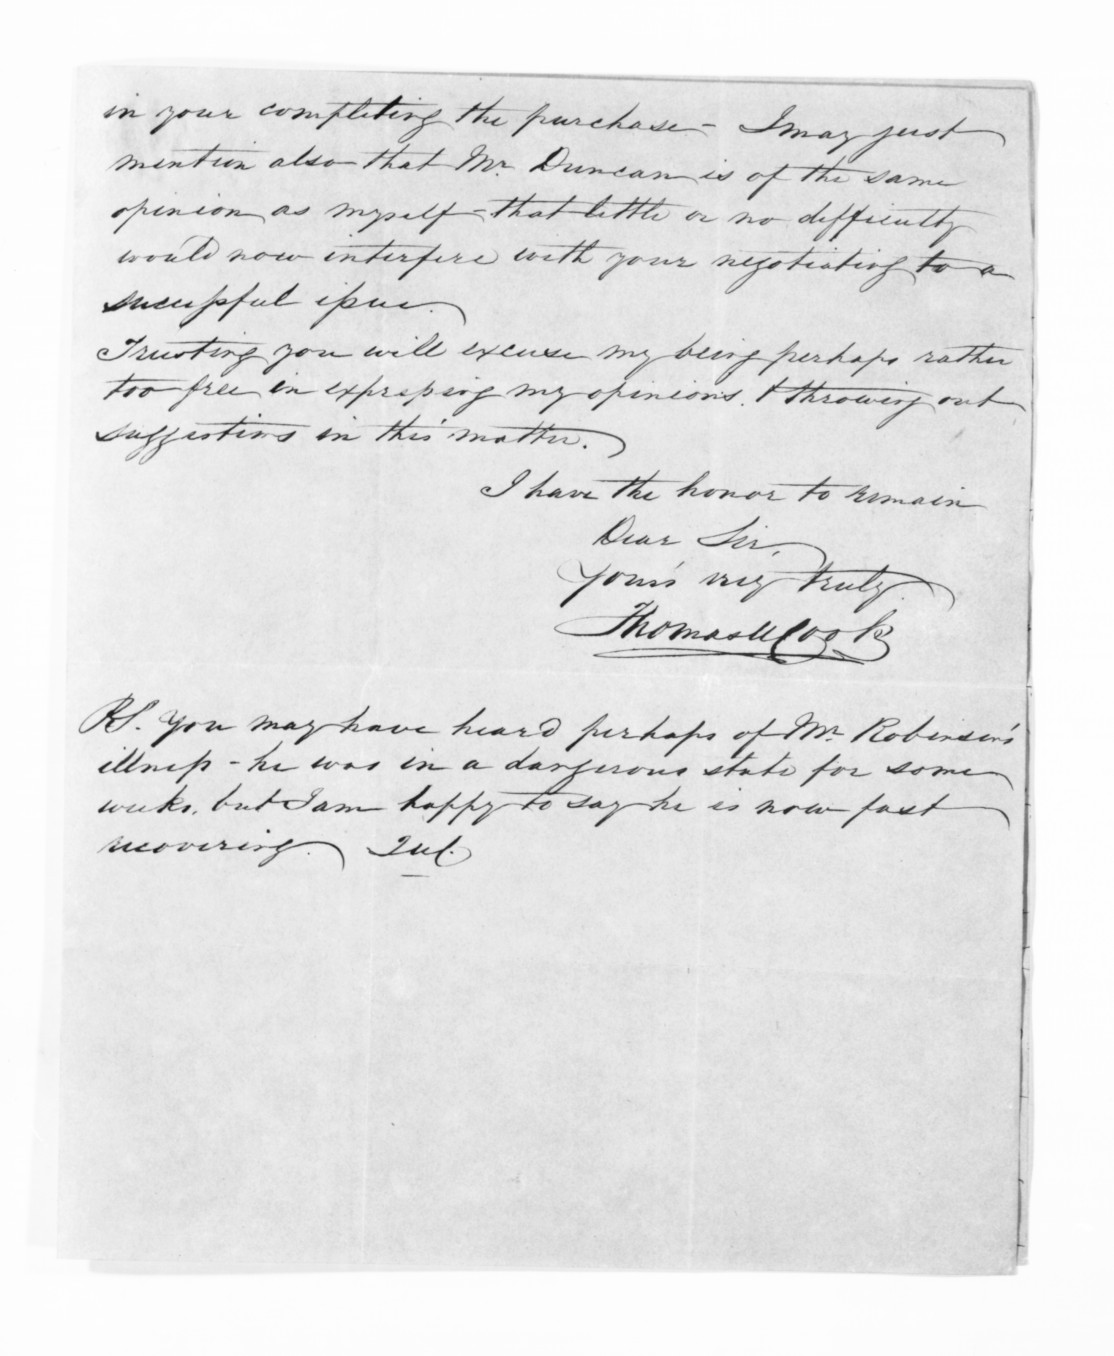 in your completing the purchase - I may just
mention also that Mr. Duncan is of the same
opinion as myself - that little or no difficulty
would now interfere with your negotiating to a
successful issue.
Trusting you will excuse my being perhaps rather
too free in expressing my opinions. & throwing out
suggestions in this matter.
I have the honor to remain
Dear Sir,
Your's very truly
Thomas Cook
P.S. You may have heard perhaps of Mr. Robinson's
illness - he was in a dangerous state for some
weeks. but I am happy to say he is now fast
recovering.